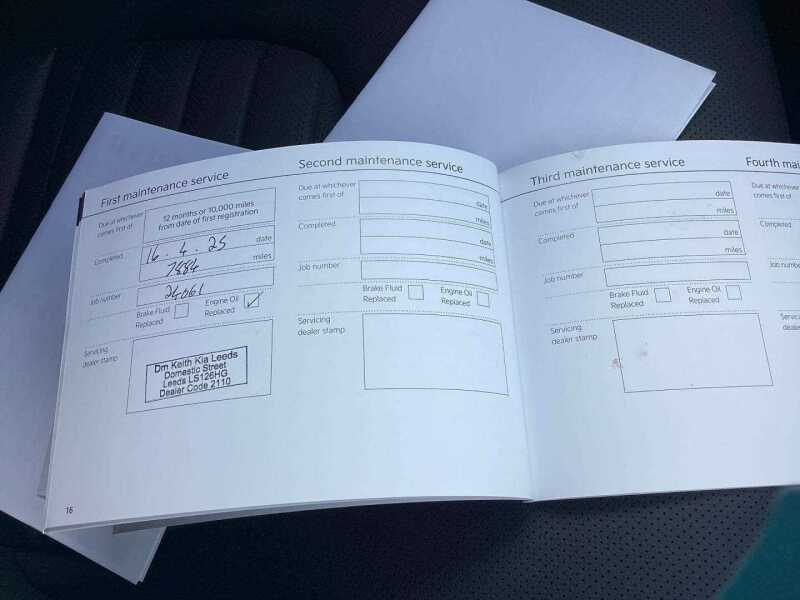 First maintenance service
Due at whichever
comes first of
12 months or 10,000 miles
from date of first registration
Completed
16 . 4 . 25 date
7884 miles
Job number
24061
Brake Fluid
Replaced
Engine Oil
Replaced
Servicing
dealer stamp
Dm Keith Kia Leeds
Domestic Street
Leeds LS126HG
Dealer Code 2110
16
Second maintenance service
Due at whichever
comes first of
date
miles
Completed
date
miles
Job number
Brake Fluid
Replaced
Engine Oil
Replaced
Servicing
dealer stamp
Third maintenance service
Due at whichever
comes first of
date
miles
Completed
date
miles
Job number
Brake Fluid
Replaced
Engine Oil
Replaced
Servicing
dealer stamp
Fourth mai
Due at whichever
comes first of
Completed
Job numbe
Servicing
dealer